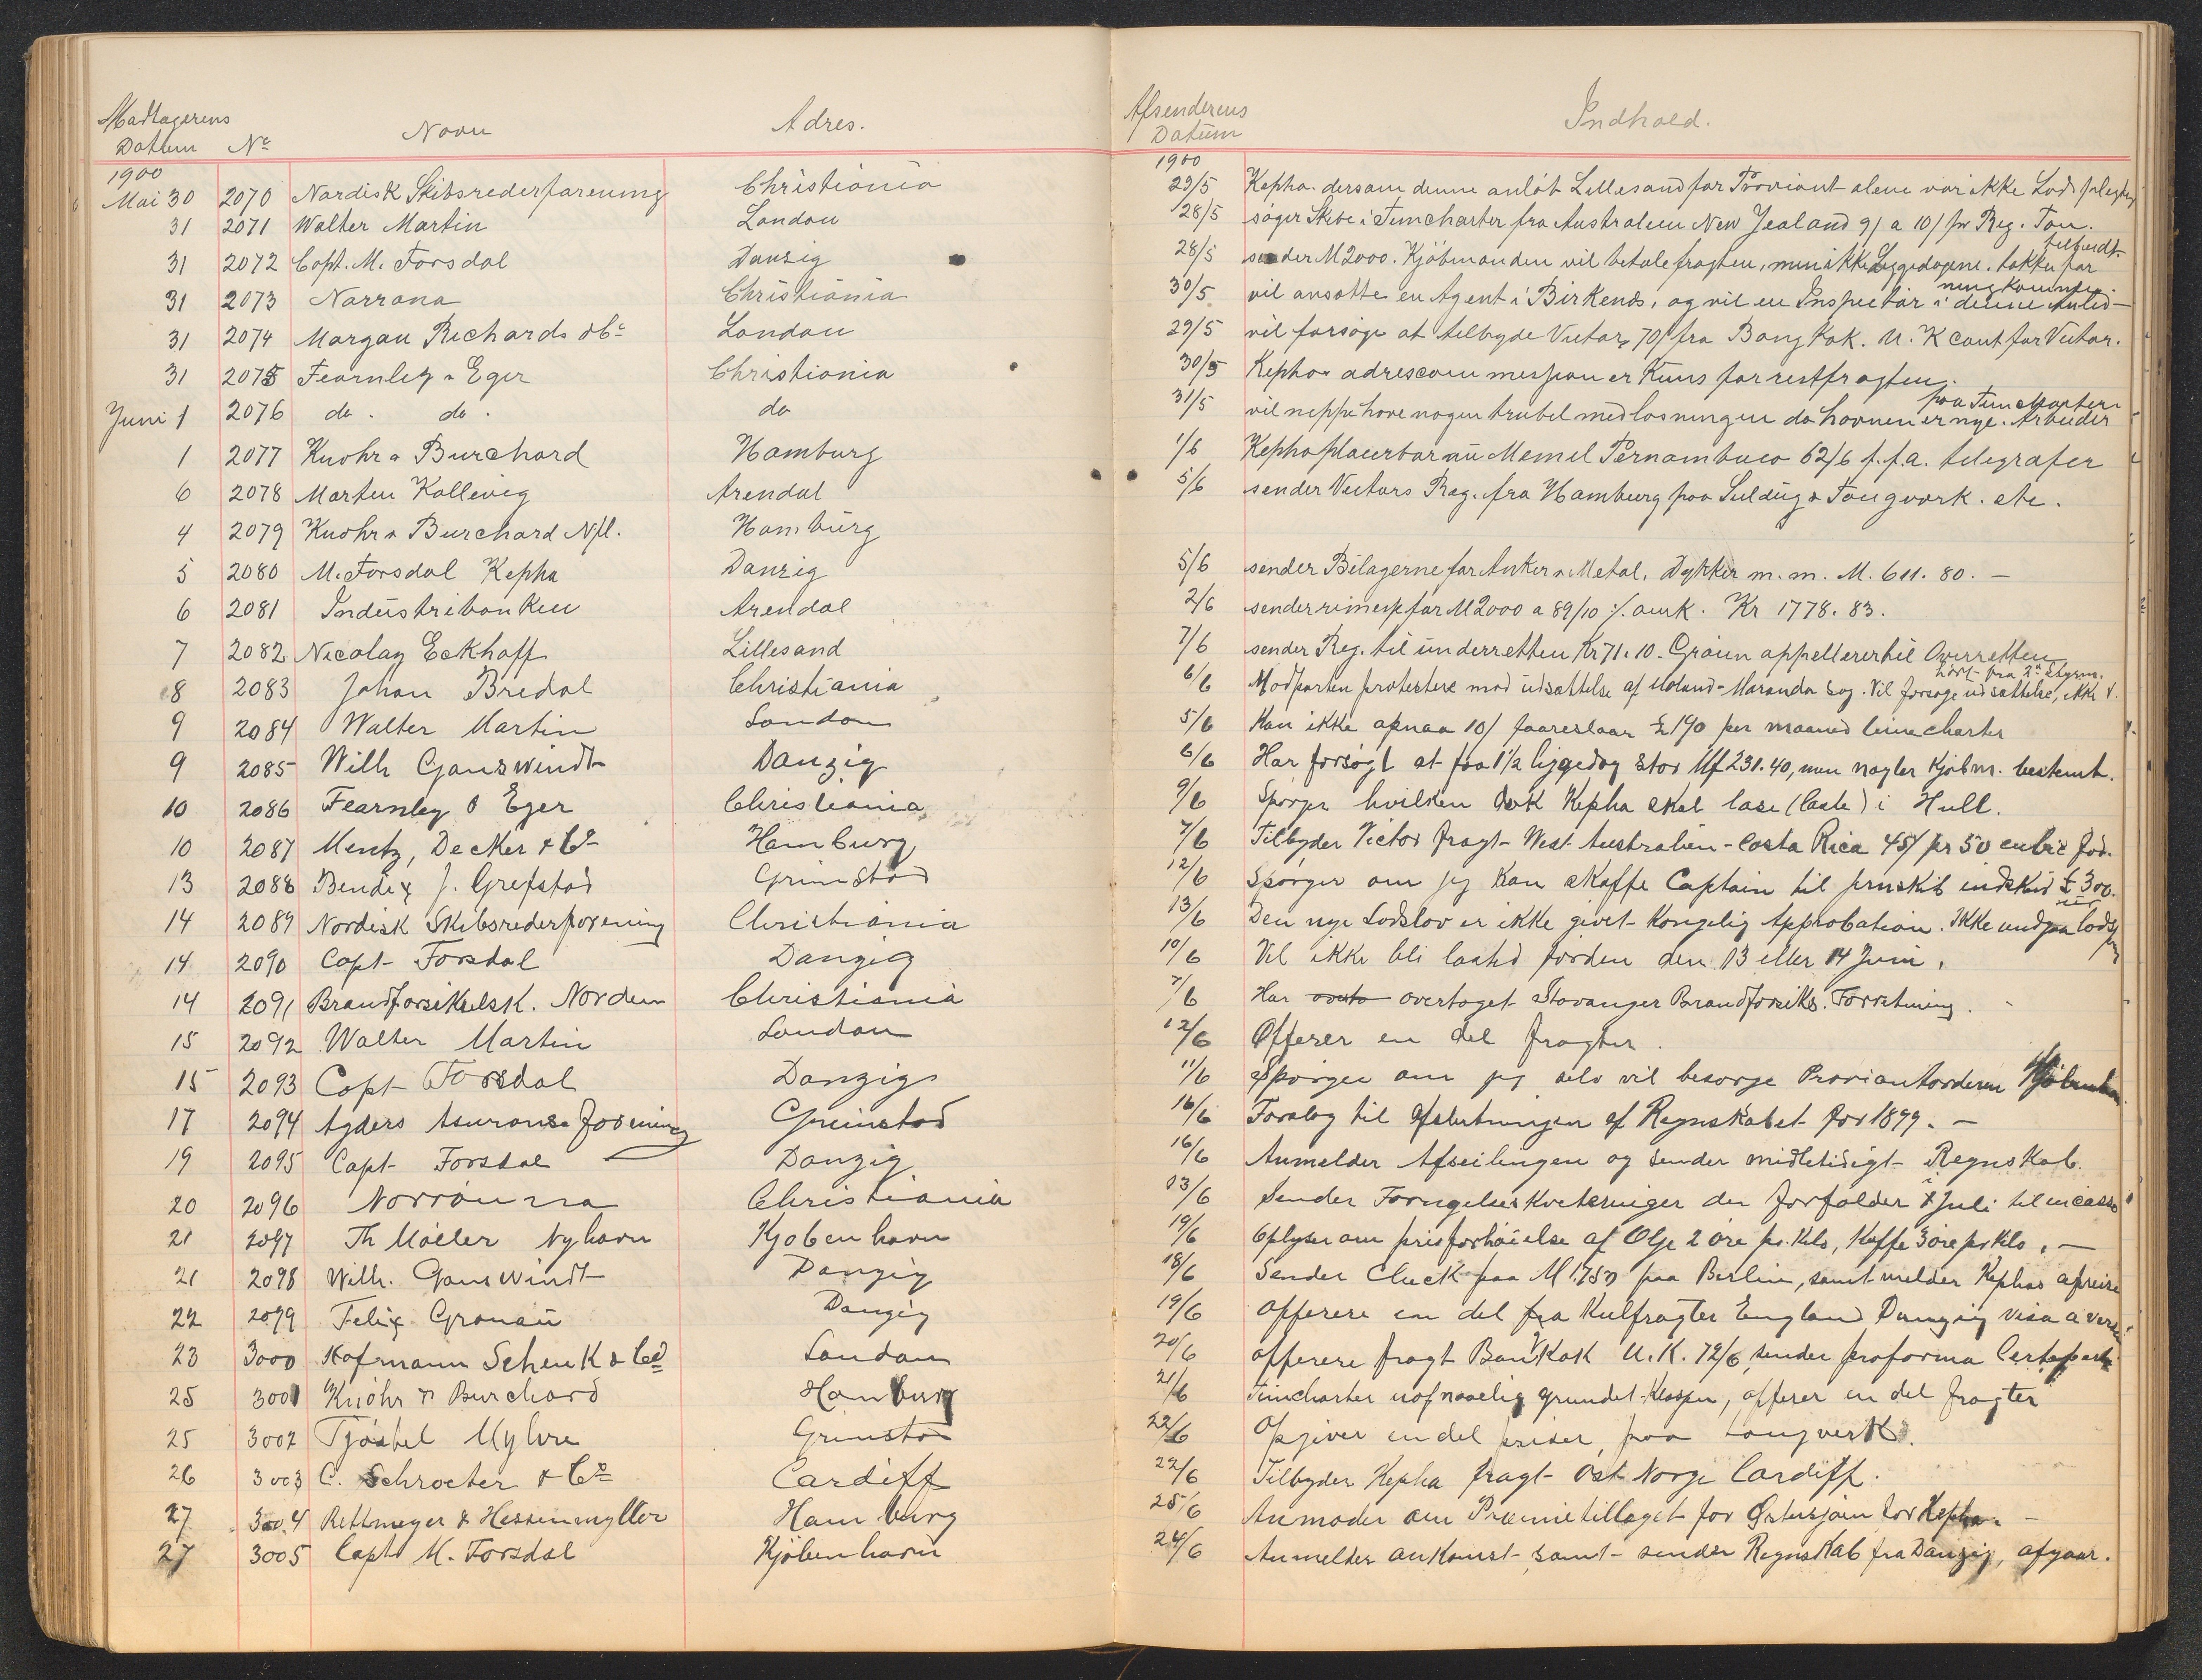 Modtagerens Datum Nº Navn Adres. Afsenderens Datum Indhold.
1900 1900
Mai 30 2070 Nordisk Skibsrederforening Christiania 29/5 Kepha. dersom denne anløb Lillesand for Proviant alene var ikke Lods
31 2071 Walter Martin London 28/5 søger Skibe i Timcharter fra Australien New Zealand 9/ a 10/ pr Reg. Ton.
31 2072 Capt. M. Forsdal Danzig 28/5 sender M 2000. Kjøbmanden vil betale fragten, men ikke Liggedagene. takker for
31 2073 Norrøna Christiania 30/5 vil ansætte en Agent i Birkenes, og vil en Inspectør i denne Anled-
31 2074 Morgan Richards & Cº London 29/5 vil forsøge at tilbyde Victor, 70/ fra Bangkok. U. K cont for Victor.
31 2075 Fearnley & Eger Christiania 30/5 Kepha adrescommission er Kuns for restfragten.
paa Timcharter
Juni 1 2076 do. do. do 31/5 vil neppe have nogen trubel med losningen da havnen er nye. Arbeider
1 2077 Knohr & Burchard Hamburg 1/6 Kepha placerbar nu Memel Pernambuco 62/6 f.f.a. telegrafer
6 2078 Morten Kallevig Arendal 5/6 sender Victors Reg. fra Hamburg paa Seldug & Tougverk. etc.
4 2079 Knohr & Burchard Nfl. Hamburg
5 2080 M. Forsdal Kepha Danzig 5/6 sender Bilagerne for Anker & Metal, Dykker m. m. M. 611. 80. —
6 2081 Industribanken Arendal 2/6 sender rimesse for M 2000 a 89/10 ÷ omk. Kr 1778. 83.
7 2082 Nicolay Eckhoff Lillesand 7/6 sender Reg. til underretten Kr 71. 10. Graun appellerer til Overretten
hørt fra 2n Styrm.
8 2083 Johan Bredal Christiania 6/6 Modparten protestere mod udsættelse af Moland-Maranda sag. Vil forsøge udsættelse, ikke
9 2084 Walter Martin London 5/6 Kan ikke opnaa 10/ foareslaar £ 190 per maaned timecharter
9 2085 Wilh Ganswindt Danzig 6/6 Har forsøgt at faa 1½ liggedag stor Mf 231. 40, men nægter Kjøbm. bestemt.
10 2086 Fearnley & Eger Christiania 9/6 Spørger hvilken Dok Kepha skal lose (laste) i Hull.
10 2087 Mentz, Decker & Cº Hamburg 7/6 Tilbyder Victor fragt West Australien - Costa Rica 45/ pr 50 cubic fod.
13 2088 Bendix J. Grefstad Grimstad 12/6 Spørger om jeg Kan skaffe Captain til jernskib indskud £ 300.
14 2089 Nordisk Skibsrederforening Christiania 13/6 Den nye Lodslov er ikke givet Kongelig Approbation. Ikke undgaa
14 2090 Capt Forsdal Danzig 10/6 Vil ikke bli lastet førden den 13 eller 14 Juni.
14 2091 Brandforsikrelsk. Norden Christiania 7/6 Har overtaget Stavanger Brandforsikr. Forretning.
15 2092 Walter Martin London 12/6 Offerer en del fragter.
15 2093 Capt Forsdal Danzig 11/6 Spørger om jeg selv vil besørge Proviantorderen
17 2094 Agders Asuranse forening Grimstad 16/6 Forslag til afslutningen af Regnskabet for 1899. —
19 2095 Capt Forsdal Danzig 16/6 Anmelder Afseilingen og sender midletidigt Regnskab.
20 2096 Norrønna Christiania 13/6 Sender Fornyelses Kvitteringer der forfalder Juli til incasso
21 2097 Th Møller Nyhavn Kjøbenhavn 19/6 Oplyser om prisforhøielse af Olje 2 øre pr. Kilo, Kaffe 3 øre pr Kilo. —
21 2098 Wilh. Ganswindt Danzig 18/6 Sender Check paa M 1750 paa Berlin, samt melder Kephas afreise
22 2099 Felix Gronau Danzig 19/6 offerere en del fra Kulfragter England Danzig visa a versa
23 3000 Hofmann Schenk & Co London 20/6 offerere fragt Bankok U. K. 72/6, sender proforma Certeparti
25 3001 Knöhr & Burchard Hamburg 21/6 Timcharter uopnaaelig grundet Klasper, offerer en del fragter
25 3002 Tjøstel Myhre Grimstad 22/6 Opgiver en del priser, paa tougverk.
26 3003 C. Schroeter & Cº Cardiff 22/6 Tilbyder Kepha fragt Ost Norge Cardiff.
27 3004 Rettmeyer & Hessenmyller Hamburg 25/6 Anmoder om Præmietillæget for Østersjøen for Kepha. —
27 3005 Capt M. Forsdal Kjøbenhavn 24/6 Anmelder ankomst, samt sender Regnskab fra Danzig, afgaar.